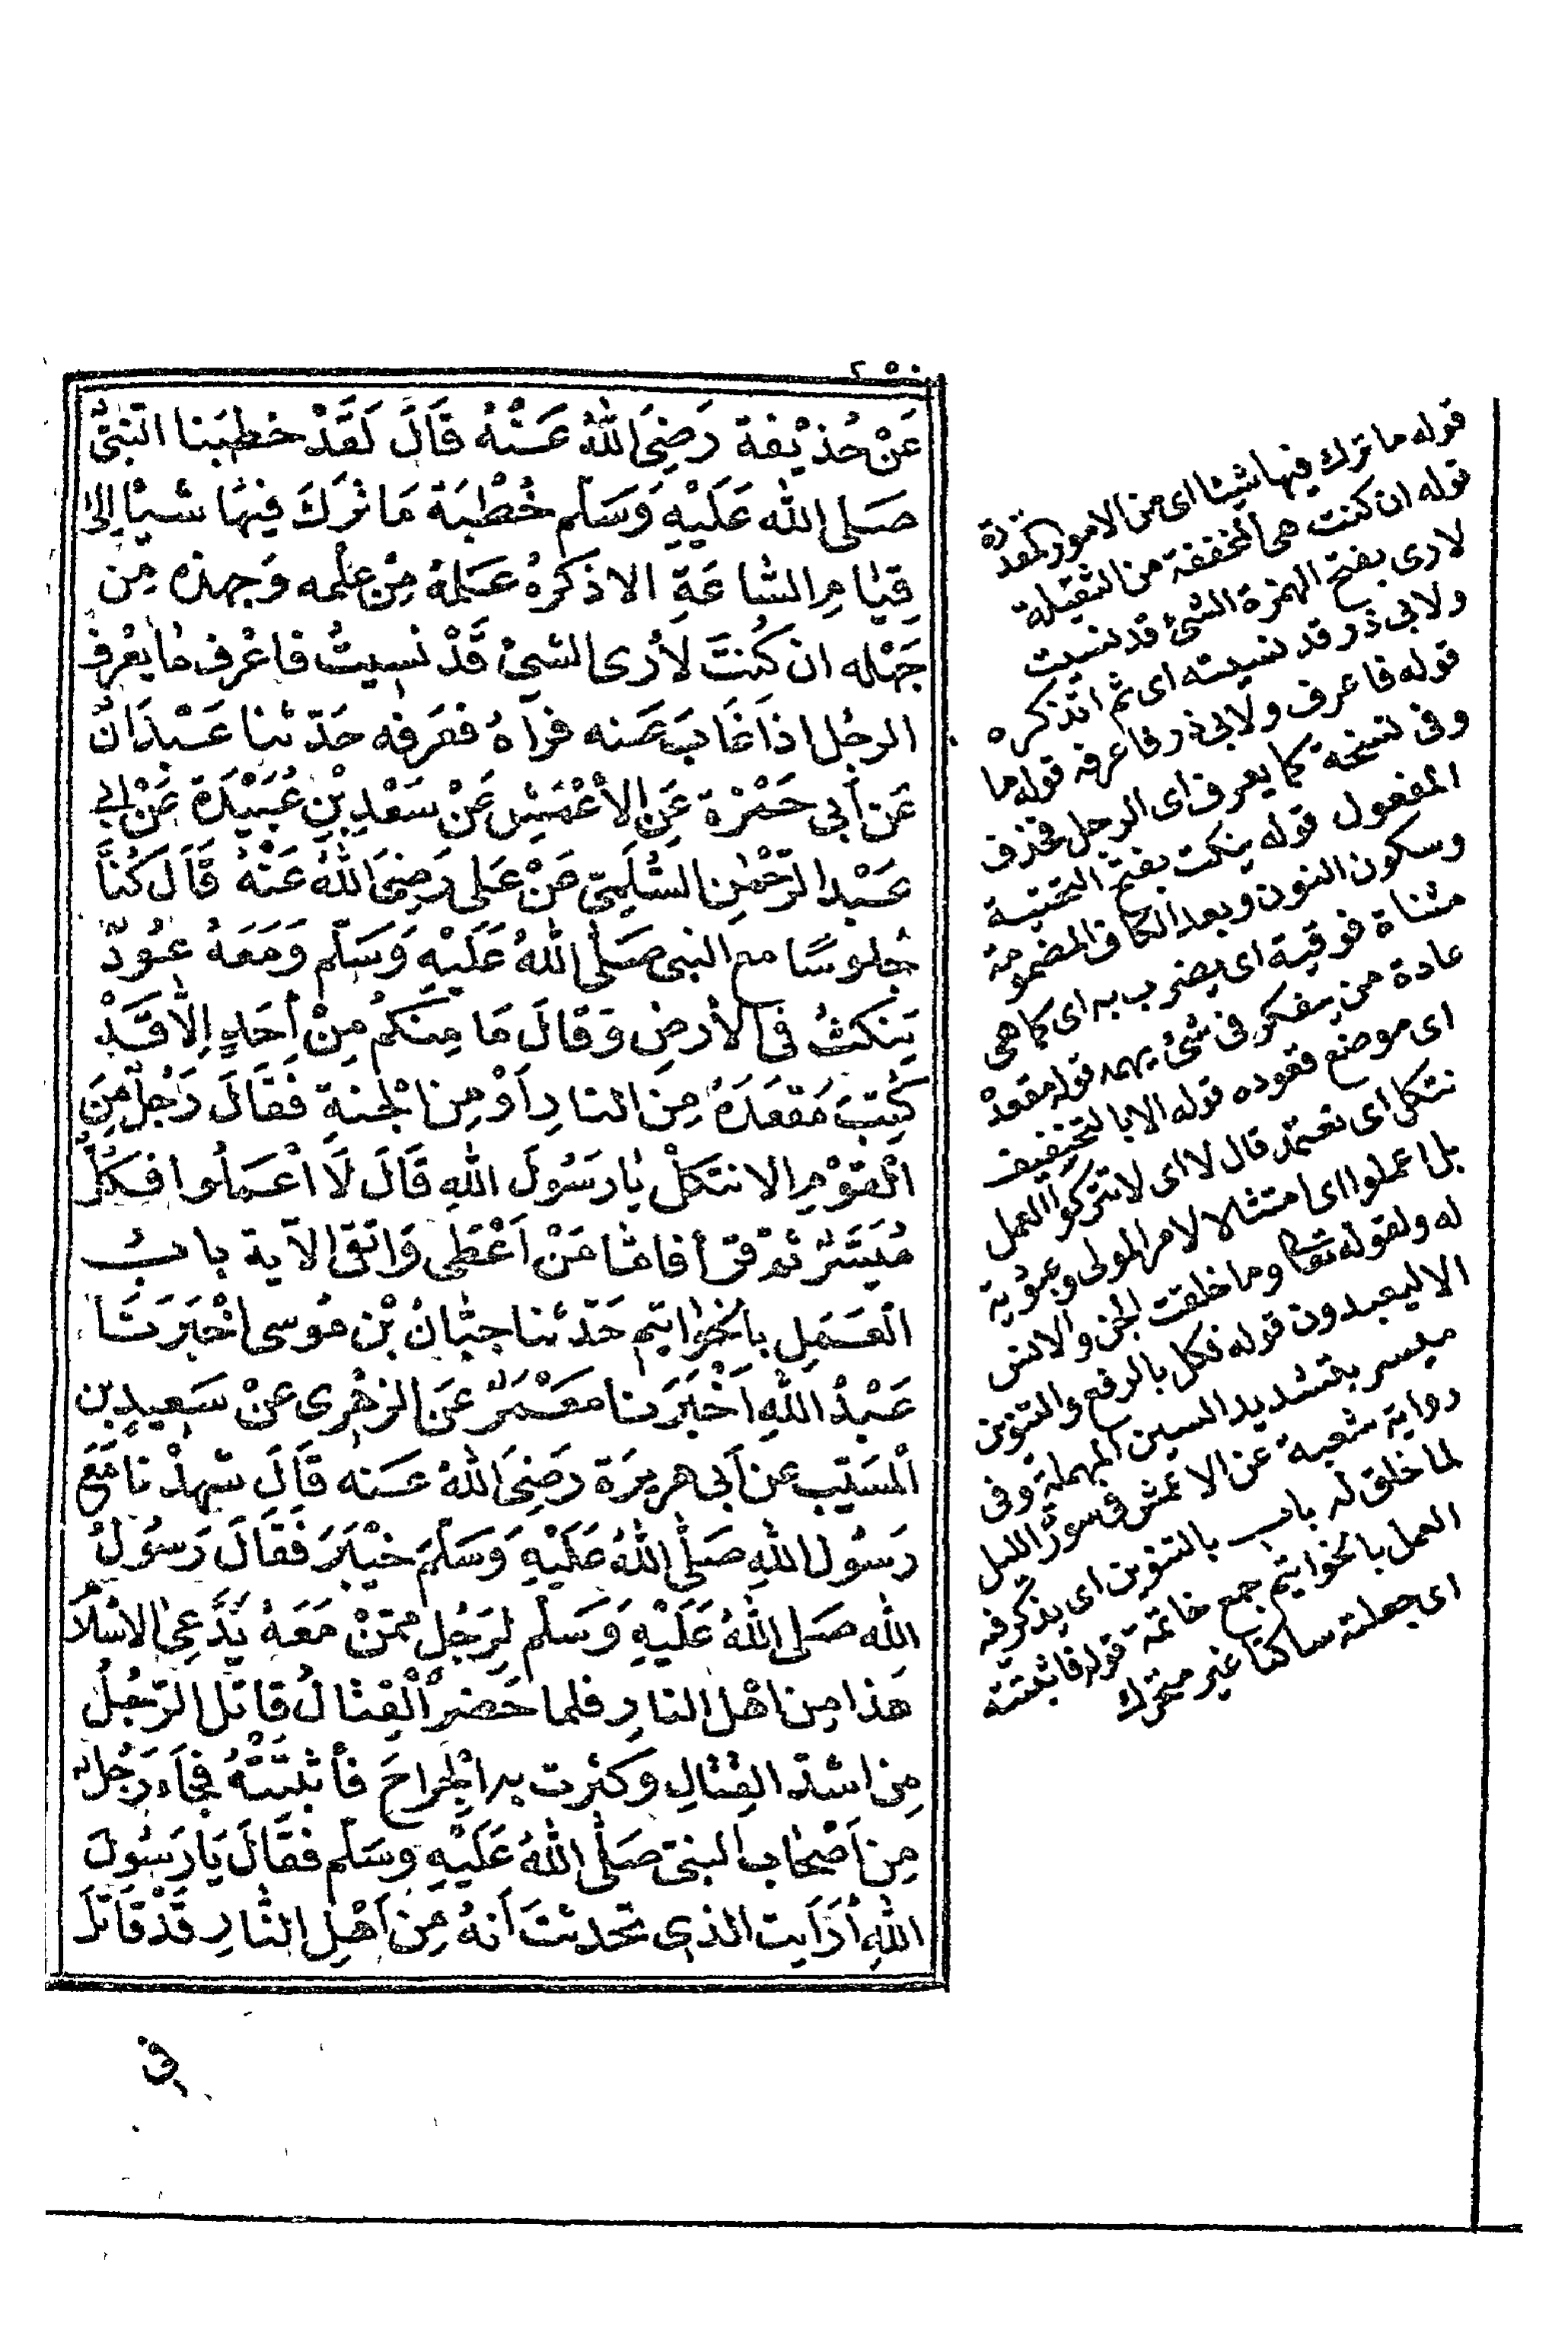 عَنْ حُذَيْفَة رَضِيَ اللهُ عَنْهُ قَالَ لَقَدْ خَطَبَنا النَّبِيُّ
صَلى الله عَلَيْهِ وَسَلّم خُطْبَة مَا تَرَكَ فِيهَا شَيْا إلى
قِيَامِ السَّاعَةِ الا ذكَرهُ عَلِمَهُ مِنْ عَلِمه وَجهله مِن
جَهْله ان كُنتَ لأرى الشيئ قَدْ نسِيتُ فاعْرف مٰا يَعْرف
الرجُل اذَا غَابَ عَنه فرآهُ فعَرَفه حَدّثنا عَبْدَانُ
عَن أَبي حَمْزة عَنِ الأعْمَشِ عَنْ سَعْدِ بْنِ عُبَيْدَة عَنْ ابي
عَبْد الرّحْمٰنِ السُّلَمِيّ عَنْ عَلى رَضِىَ اللهُ عَنْهُ قَالَ كُنَّا
جُلوسًا مع النبى صَلّى اللهُ عَلَيْهِ وَسَلّم وَمَعَهُ عُودٌ
يَنكتُ فى الأرضِ وَقالَ مَا مِنكمُ مِنْ أحَدٍ اِلّا قَدْ
كُتِبَ مَقعَدَهُ مِنَ النارِ اَوْ مِنَ الْجنةِ فَقَالَ رَجُلٌ مِنَ
الْقَوْمِ الا نتَكلْ يٰا رَسُولَ اللهِ قَالَ لَا اعْمَلُوا فكُلٌّ
مُيَسَّرٌ ثمّ قرَأ فامّا مَنْ اَعْطٰى وَاتّقى الآية بابُ
الْعَمَلِ بالخوَاتِيم حَدّثنا حِبّانُ بْن مُوسى اخْبَرَنَا
عَبْدُ اللهِ اَخْبَرَنا مَعْمَرٌ عَنِ الزهْرِى عَنْ سَعِيدِ بن
الْمسَيّب عن أبى هريرَة رَضِىَ اللهُ عنه قَالَ شهِدْنا مَعَ
رَسُول اللهِ صَلَّى اللهُ عَلَيْهِ وَسَلَّمَ خَيْبَرَ فَقَالَ رَسُولُ
الله صَلى اللهُ عَلَيْهِ وَسَلّم لِرَجُل ممّنْ مَعَهُ يَدَّعِى الاسْلَام
هَذا مِن اهْل النارِ فلما حَضَرَ الْقِتالُ قاتل الرّجُلُ
مِن اشدّ القِتالِ وكثرت به الجِراحَ فأثبَتَتْهُ فَجَاءَ رَجُلٌ
مِن أصْحَاب النبىّ صَلَّى اللهُ عَلَيْهِ وسَلّم فقَالَ يَا رَسُولَ
اللهِ أرَأيت الذى تحَدثتَ أنهُ مِن أهْلِ النّارِ قَدْ قاتَلَ
فى
قوله ما ترك فيها شيئا اى من الامور المقدرة
قوله ان كنت هى المخففة من الثقيلة
لارى بفتح الهمزة الشئ قد نسيت
ولابى ذر قد نسيته اى ثم اتذكره
قوله فاعرف ولابى ذر فاعرفه قوله ما
وفى نسخة كما يعرف اى الرجل فحذف
المفعول قوله ينكت بفتح التحتية
وسكون النون وبعد الكاف المضمومة
مثناة فوقية اى يضرب به اى كما هى
عادة من يتفكر فى شئ يهمه قوله مقعده
اى موضع قعوده قوله الا بالتخفيف
نتكل اى نعتمد قال لا اى لا تتركوا العمل
بل اعملوا اى امتثالا لامر المولى وعبودية
له ولقوله تعالى وما خلقت الجن والانس
الا ليعبدون قوله فكل بالرفع والتنوين
ميسر بتشديد السين المهملة وفى
رواية شعبة عن الاعمش فى سورة الليل
لما خلق له باب بالتنوين اى يذكر فيه
العمل بالخواتيم جمع خاتمة قوله فاثبتته
اى جعلته ساكنا غير متحرك